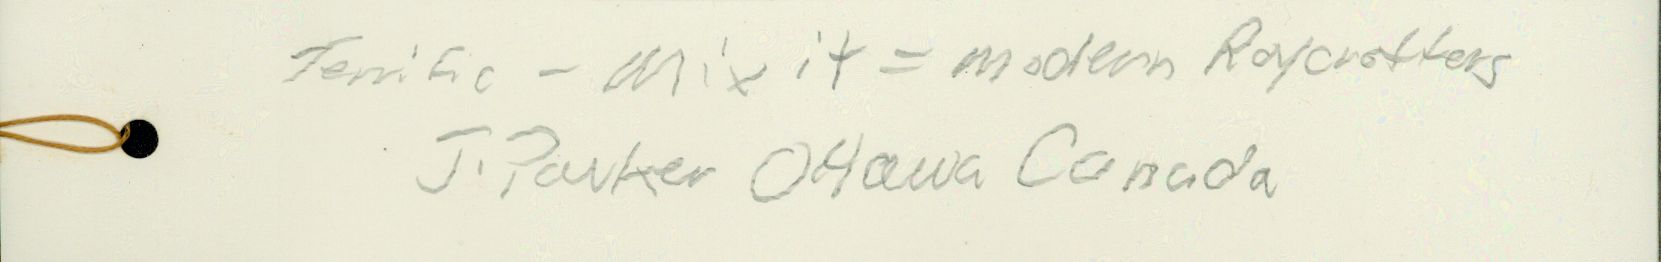 Terrific - Mix it = modern Roycrofters
J. Parker Ottawa Canada